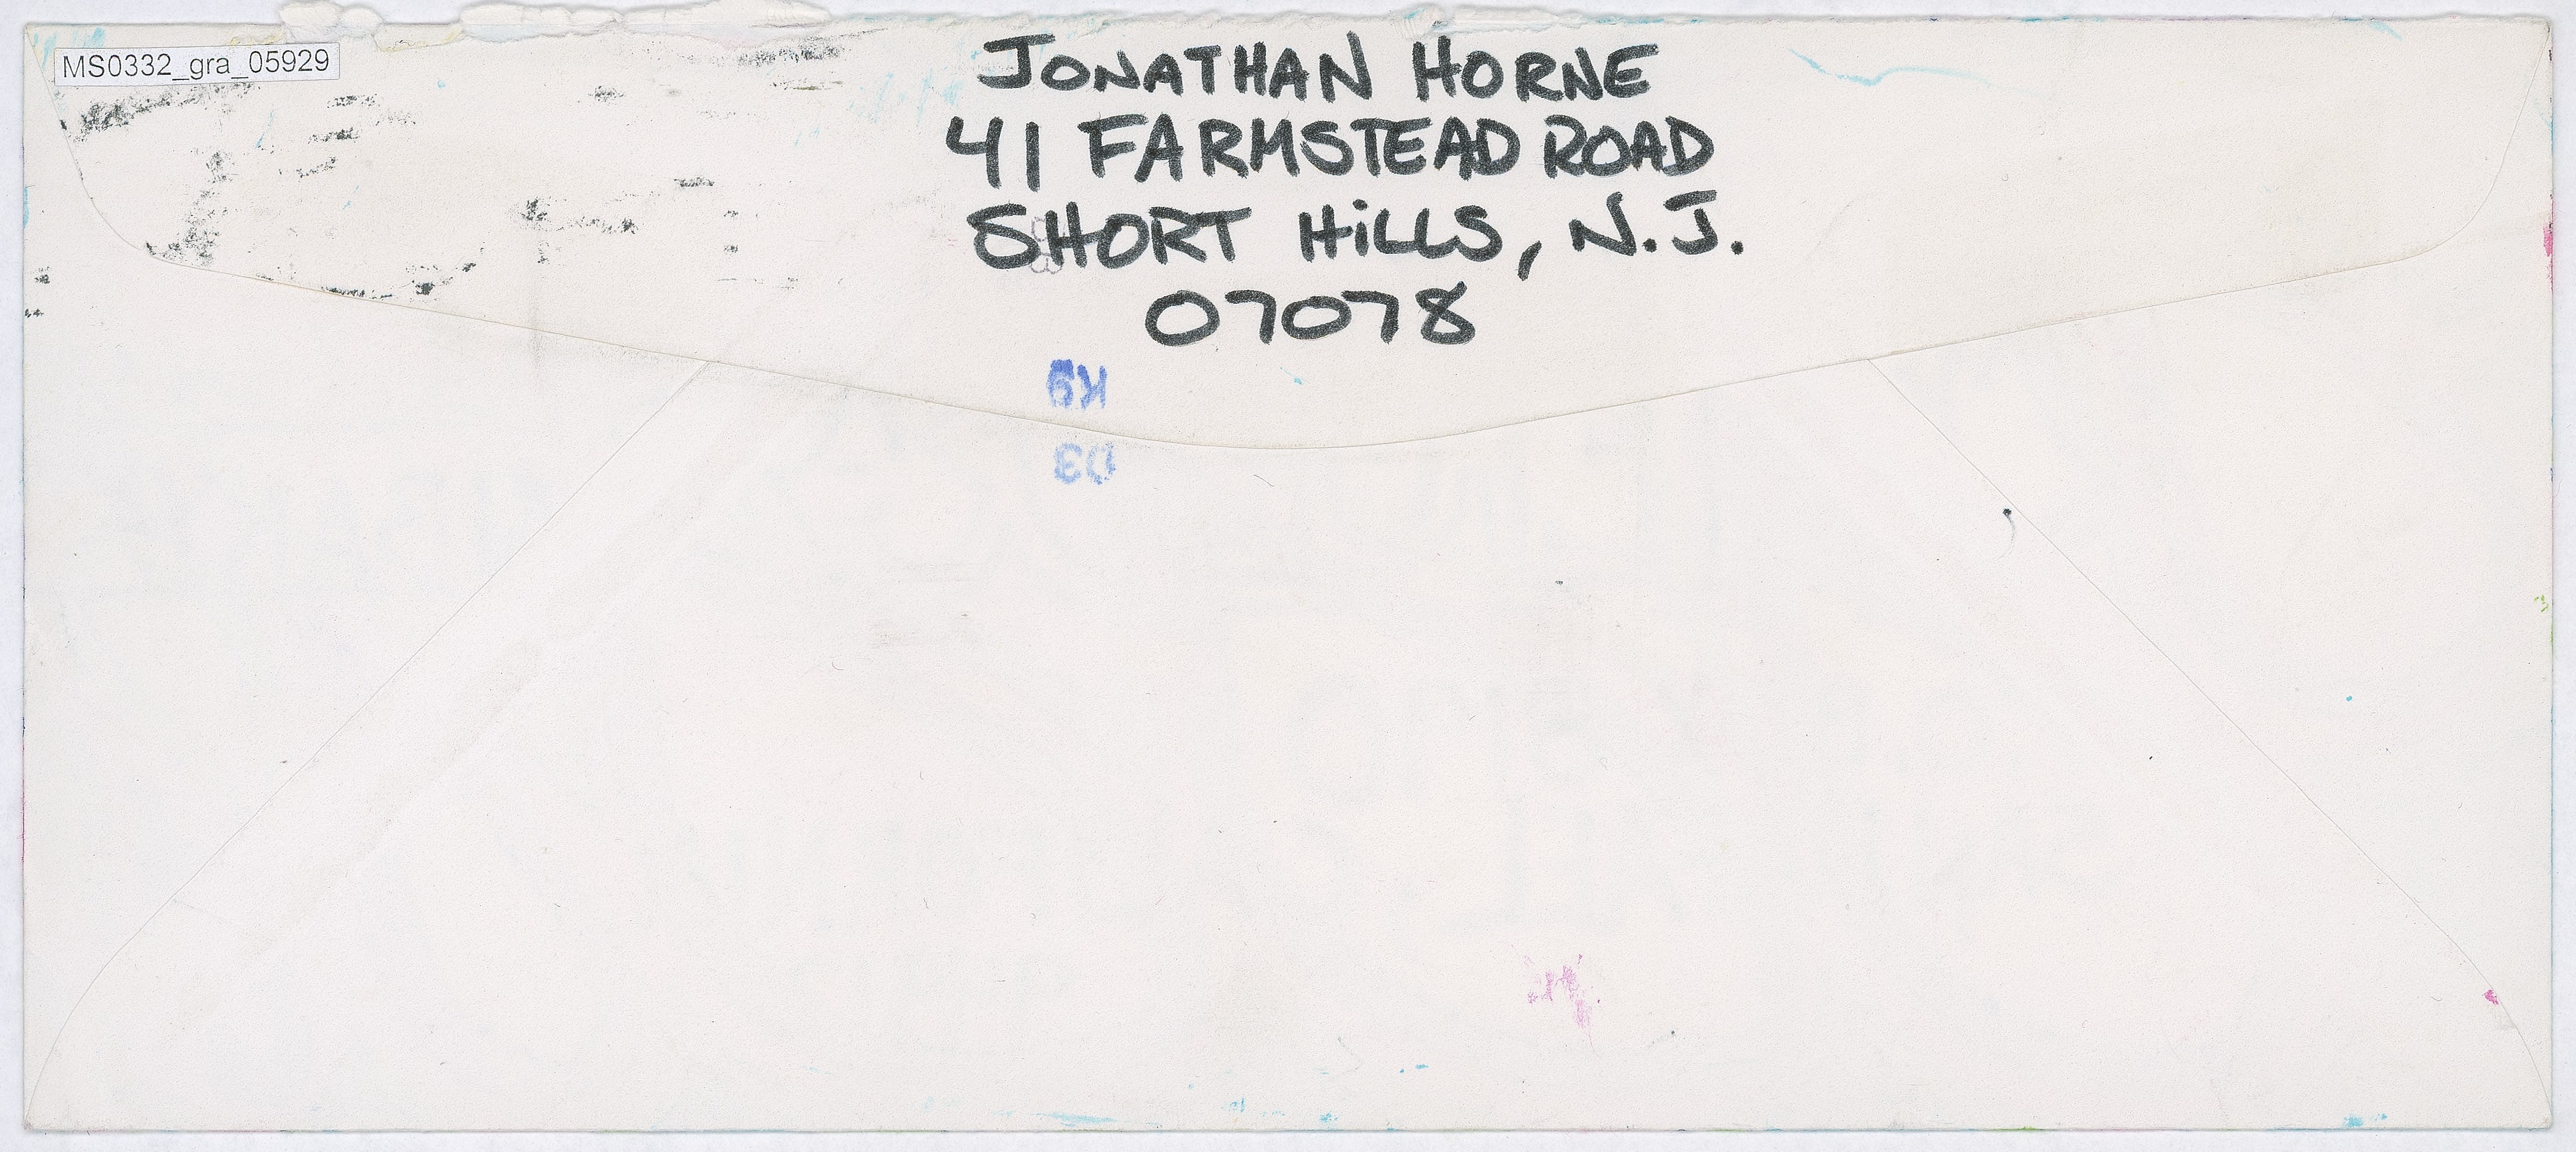 MS0332_gra_05929
JONATHAN HORNE
41 FARMSTEAD ROAD
SHORT HiLLS, N.J.
07078
K9
D3